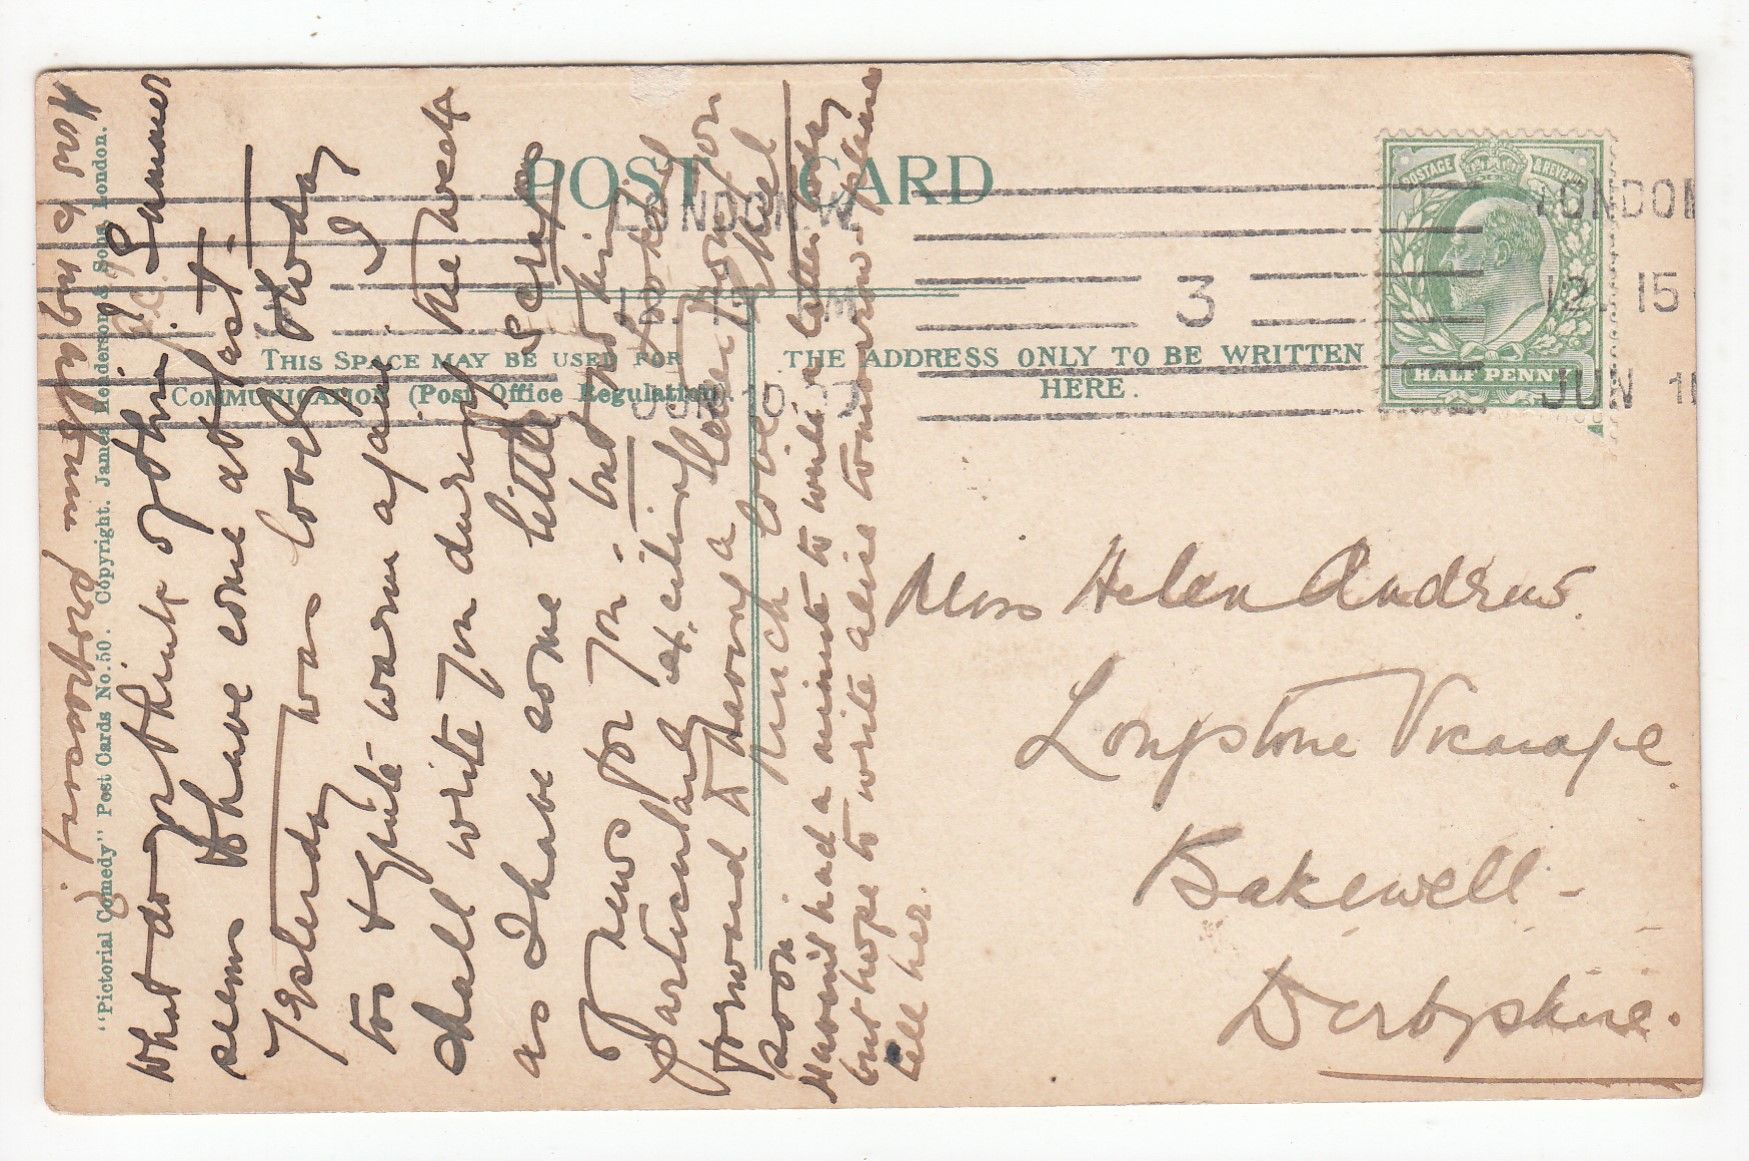 POST CARD
THIS SPACE MAY BE USED FOR
COMMUNICATION (Post Office Regulation)
THE ADDRESS ONLY TO BE WRITTEN
HERE.
"Pictorial Comedy" Post Cards No. 50. Copyright. James Henderson & Sons, London.
LONDON. W.
12.15
JUN 10
3
LONDON
12.15
JUN 10
POSTAGE & REVENUE
HALF PENNY
How is my album progressing?
What do you think of this! Summer
seems to have come at last.
Yesterday was lovely & today
too & quite warm again. I
shall write you during the week
as I have some little scraps
of news for you - but nothing
particularly exciting. Looking
forward to having a letter from you
soon. Much love Ethel
Haven't had a minute to write a letter today
but hope to write Alice tomorrow - please
tell her.
Miss Helen Andrew.
Longstone Vicarage
Bakewell -
Derbyshire.